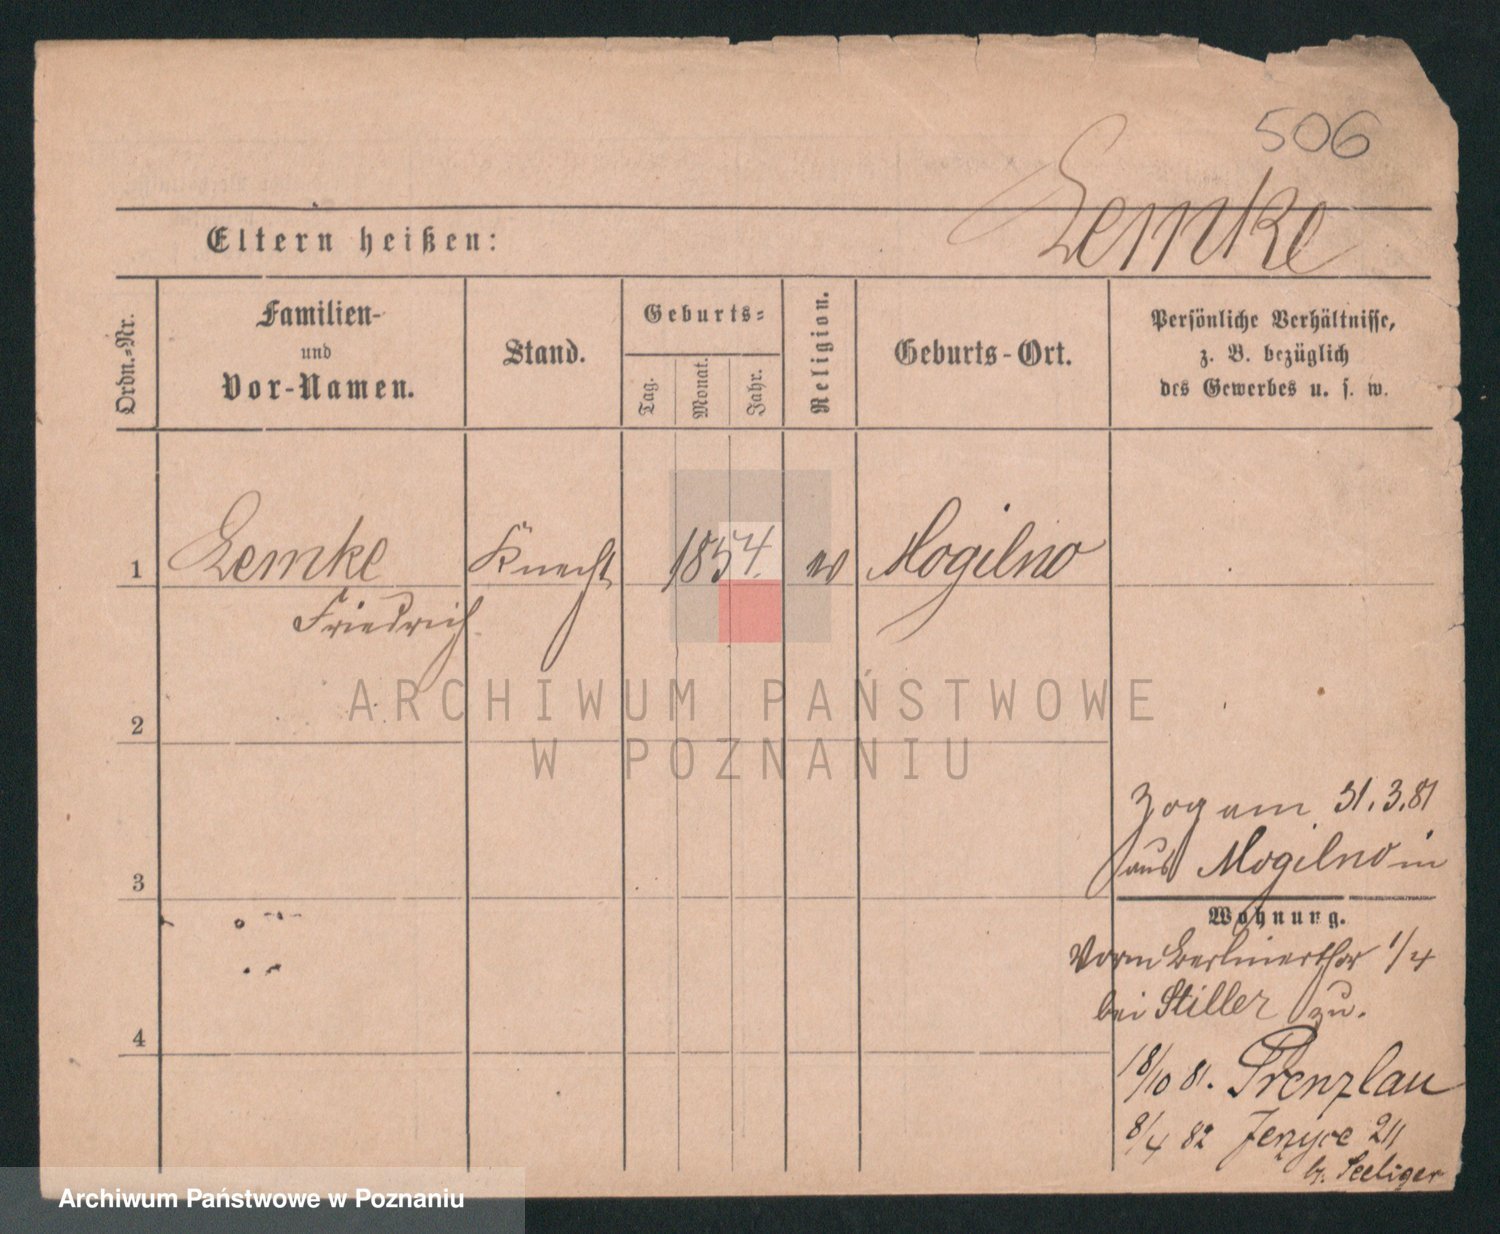 506
Lemke
Eltern heißen:
Ordn.-Nr.
Familien-
und
Vor-Namen.
Stand.
Geburts-
Tag.
Monat.
Jahr.
Religion.
Geburts-Ort.
Persönliche Verhältnisse,
z. B. bezüglich
des Gewerbes u. s. w.
1
Lemke
Friedrich
Knecht
1854.
ev
Mogilno
2
3
4
Zog am 31.3.81
aus Mogilno in
Wohnung.
Vorm Berlinerthor 1/4
bei Stiller zu.
18/10 81. Prenzlau
8/4 82 Jerzyce 211
b. Seeliger
ARCHIWUM PAŃSTWOWE
W POZNANIU
Archiwum Państwowe w Poznaniu